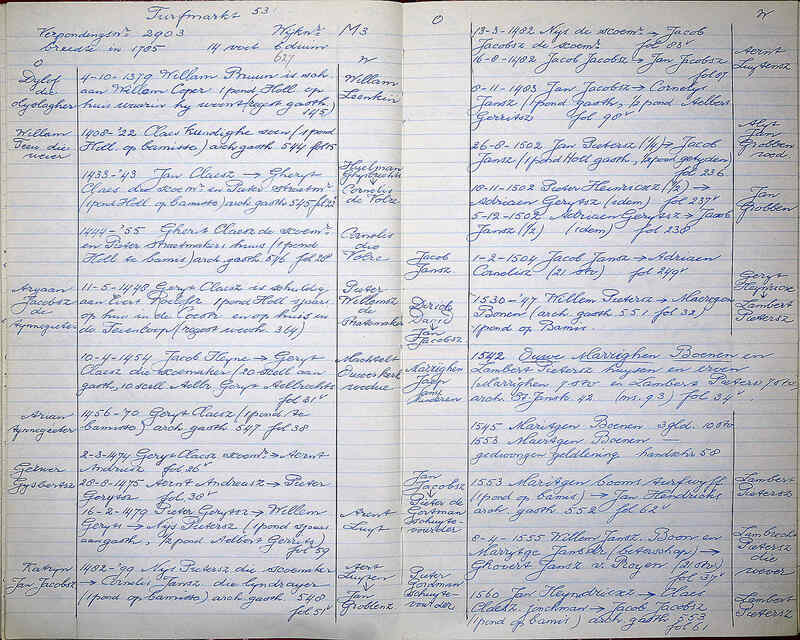 Turfmarkt 53
Verpondingsnr 2903 Wijknr M3
breedte in 1785 14 voet 6 duim
627
O W
Dylof die olyslagher
4-10-1379 Willam Pruun is sch.
aan Willem Coper 1 pond Holl. op
huis waarin hy woont (regest gasth.
145)
Willam Leenkin
Willam Teeu die wever
1408-'22 Claes kundighe soen (1 pond
Holl. op bamisse) arch gasth 544 fol 15
1433-'43 Jan Claesz → Gheryt
Claes die scoemr. en Pieter
(1 pond Holl. op bamisse) arch gasth 545 fol 22
Cornelis de Volre
1444-'55 Ghert Claesz de scoemr.
en Pieter Straetmakers huus (1 pond
Holl. te bamis) arch gasth 546 fol 28
Cornelis die Volre
Aryaan Jacobsz de
11-5-1448 Geryt Claesz is schuldig
aan Evert 1 pond Holl 's jaars
op huis in de en op huis in
de (regest weesk 314)
Pieter Willemsz de
10-4-1454 Jacob Heyne → Geryt
Claesz die scoemaker (20 scell aan
gasth, 10 scell Aelbr. Geryt Aelbrechts
fol 31v
Machtelt Ouwerkerk weduwe
Arian
1456-70 Geryt Claesz (1 pond te
bamisse) arch gasth 547 fol 38
2-3-1474 Geryt Claesz scoemr. → Aernt
Andriesz fol 26v
Gysbertsz
28-8-1475 Aernt Andreasz → Pieter
Gerytsz fol 38v
16-2-1479 Pieter Gerytsz → Willem
Geryts → Nys Pietersz (1 pond 's jaars
aan gasth, 1/2 pond Aelbert Gerrytsz)
fol 59
Aernt Luyt
Katryn Jan Jacobsz
1482-'99 Nys Pietersz die scoemaker
→ Cornelis Jansz die lyndrayer
(1 pond op bamisse) arch gasth 548
fol 51v
Aert Luytsen
Jan Grobbenz
O W
13-3-1482 Nys de scoemr. → Jacob
Jacobsz de scoemr. fol 83v
16-8-1482 Jacob Jacobsz → Jan Jacobsz
fol 87
Aernt Luytensz
8-11-1483 Jan Jacobsz → Cornelys
Jansz (1 pond gasth, 1/2 pond Aelbert
Gerritsz fol 98v
Alyt Jan Grobben
26-8-1502 Jan Pietersz (1/2) → Jacob
Jansz (1 pond Holl gasth, 1/2 pond getyden)
fol 236
18-11-1502 Pieter Heinricxsz (1/2) →
Adriaen Gerytsz (idem) fol 237v
5-12-1502 Adriaen Gerytsz → Jacob
Jansz (1/2) (idem) fol 238
Jan Grobben
Jacob Jansz
1-2-1504 Jacob Jansz → Adriaen
Cornelisz (21 stv) fol 249v
Geryt Heynricx
↓
Lambert Pietersz
Dirick David
↓
Jan Jacobsz
1530-'47 Willem Pietersz → Maerygen
Bonen (arch. gasth 551 fol 32)
1 pond op Bamis.
Marrighen Jaep
1542 Ouwe Marrighen Boenen en
Lambert Pietersz huysen en erven
(Marrighen 7 stv en Lambert Pietersz 7 stv)
arch. St. Jansk 42 (ms. 93) fol 34v.
1545 Maritgen Boenen 3 gld. 10 stv
1553 Maertgen Boenen —
gedwongen geldlening handschr 58
Jan Jacobsz
↓
Pieter de Gortman schuytevoerder
1553 Maritgen booms
(1 pond op bamis) → Jan Hendricks
arch. gasth 552 fol 62v
Lambert Pietersz
8-4-1555 Willem Jansz. Boon en
Marrytge Jansdr (betaalschap) →
Ghovert Jansz v. Royen (21 stv)
fol 37v
Lambrecht Pietersz die wever
Pieter Gortman schuytevoerder
1560 Jan Heyndricxz → Claes
Claesz. Jonckman → Jacob Jacobsz
(1 pond op bamis) arch. gasth 553
fol 61
Lambert Pietersz